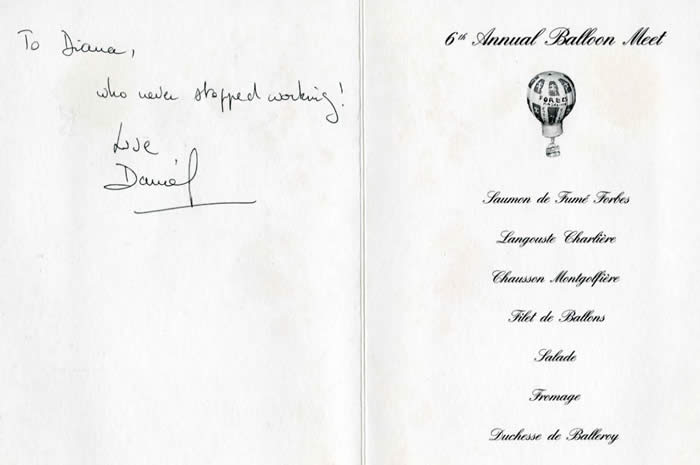 To Diana,
who never stopped working!
Love
Daniél
6th Annual Balloon Meet
FORBES
Saumon de Fumé Forbes
Langouste Charlière
Chausson Montgolfière
Filet de Ballons
Salade
Fromage
Duchesse de Balleroy